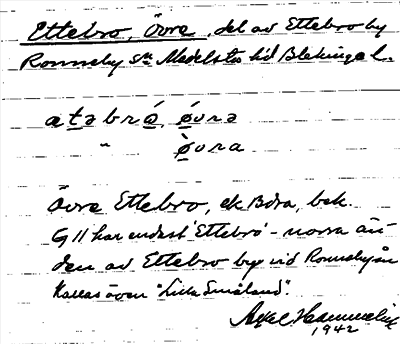 Ettebro, Övre, del av Ettebro by
Ronneby sn Medelstads hd Blekinge l.
atəbrö, øvrə
" òvra
Övre Ettebro, ek Böra, bek.
G 11 har endast 'Ettebro' - norra än-
den av Ettebro by vid Ronnebyån
kallas även "Lilla Småland".
Axel
1942